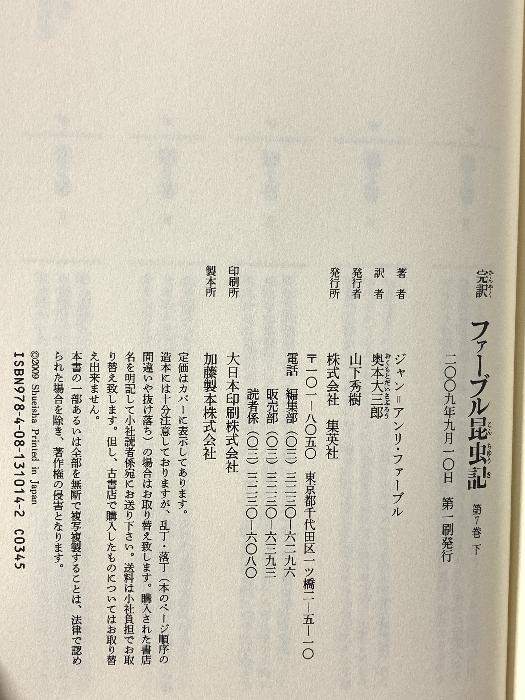 完訳 ファーブル昆虫記 第7巻 下
かんやく
こんちゅうき
二〇〇九年九月一〇日 第一刷発行
著者 ジャン=アンリ・ファーブル
訳者 奥本大三郎
おくもとだいさぶろう
発行者 山下秀樹
発行所 株式会社 集英社
〒一〇一―八〇五〇 東京都千代田区一ツ橋二―五―一〇
電話 編集部(〇三)三二三〇―六二九六
販売部(〇三)三二三〇―六三九三
読者係(〇三)三二三〇―六〇八〇
印刷所 大日本印刷株式会社
製本所 加藤製本株式会社
定価はカバーに表示してあります。
造本には十分注意しておりますが、乱丁・落丁(本のページ順序の
間違いや抜け落ち)の場合はお取り替え致します。購入された書店
名を明記して小社読者係宛にお送り下さい。送料は小社負担でお取
り替え致します。但し、古書店で購入したものについてはお取り替
え出来ません。
本書の一部あるいは全部を無断で複写複製することは、法律で認め
られた場合を除き、著作権の侵害となります。
©2009 Shueisha Printed in Japan
ISBN978-4-08-131014-2 C0345